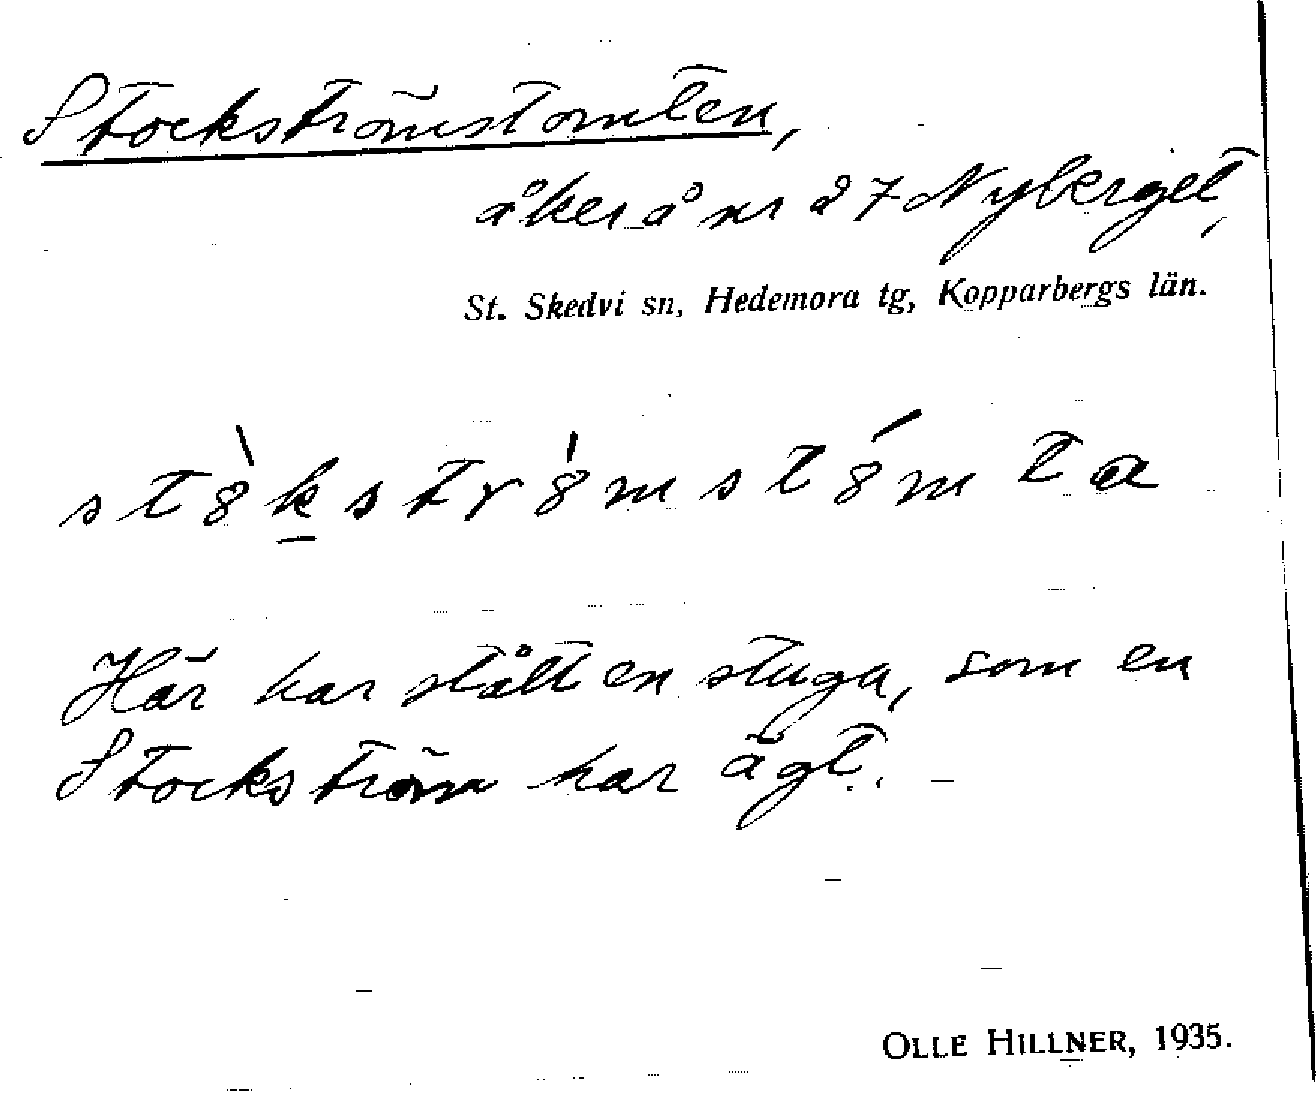 Stockströmstomten,
åker å nr 27 Nyberget,
St. Skedvi sn, Hedemora tg, Kopparbergs län.
st8̀k̲str8̍mst8́mta
Här har stått en stuga, som en
Stockström har ägt. –
OLLE HILLNER, 1935.